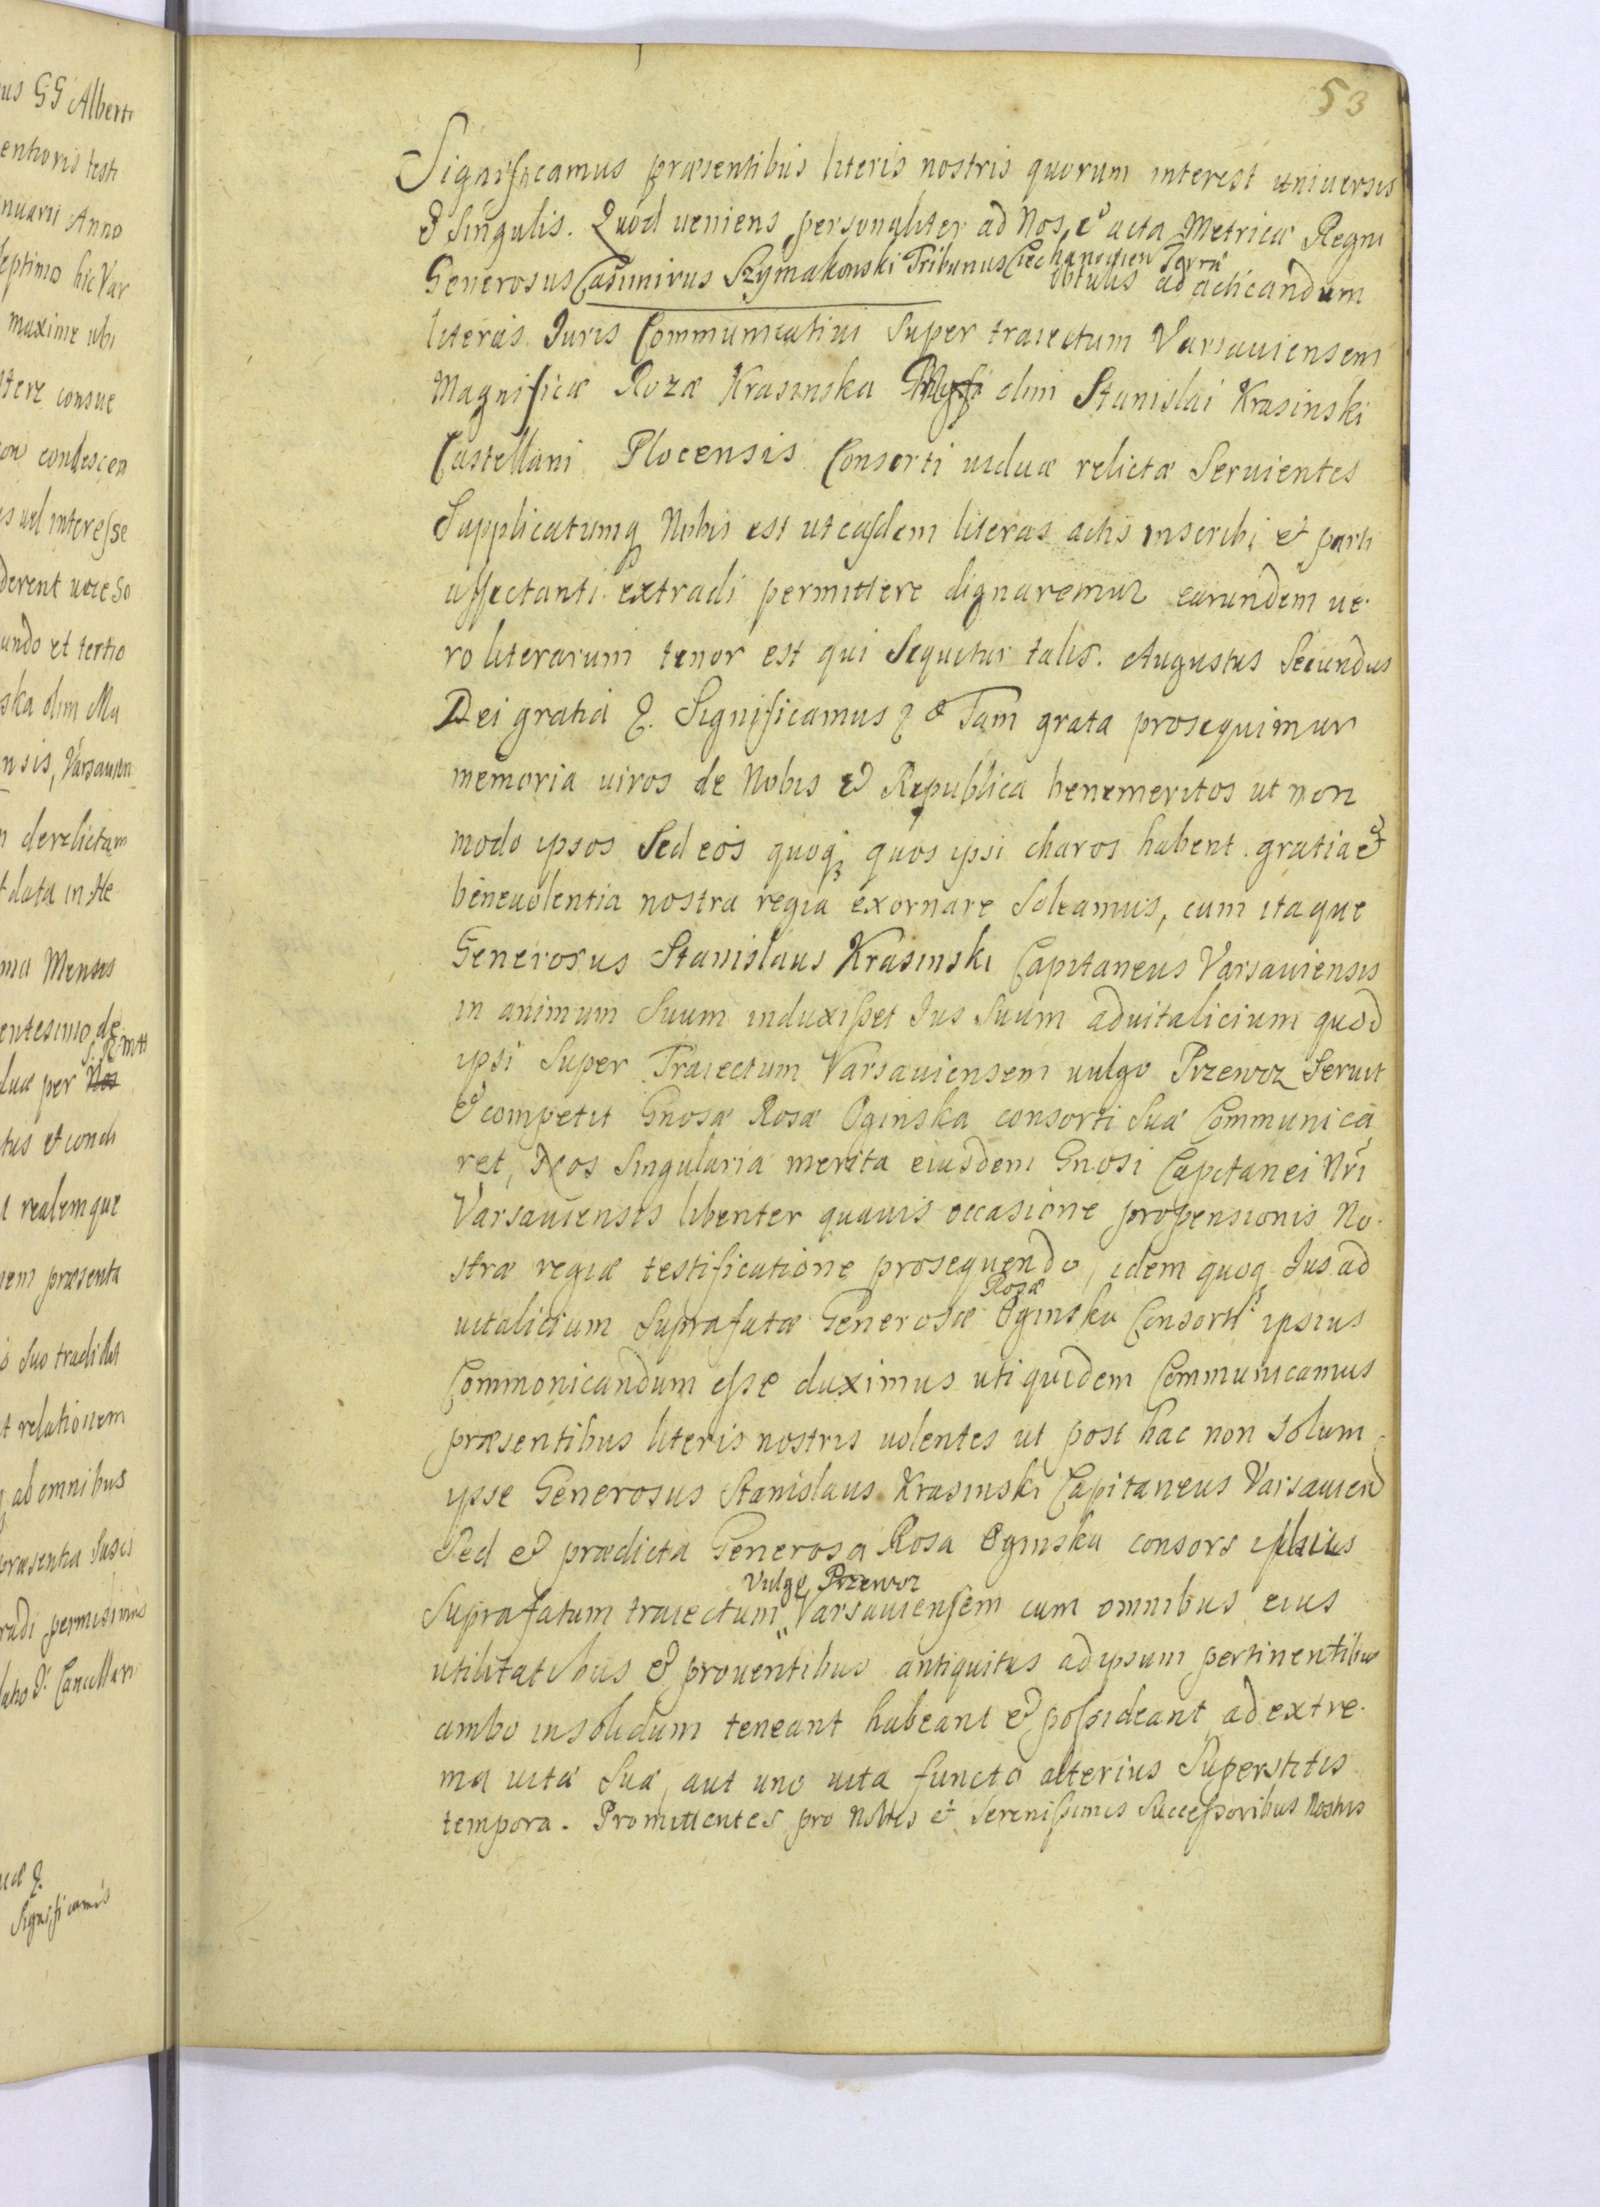 53
Significamus præsentibus literis nostris quorum interest uniuersis
& Singulis. Quod ueniens personaliter ad Nos, & acta Metricæ Regni
Generosus Casimirus Szymakowski Tribunus Ciechanouien Terræ obtulit ad acticandum
literas Iuris Communicatiui Super traiectum Varsauiensem
Magnificæ Rozæ Krasinska olim Stanislai Krasinski
Castellani Plocensis Consorti uiduæ relictæ Seruientes
Supplicatumq Nobis est ut easdem literas actis inscribi et parti
affectanti extradi permittere dignaremur earundem ue-
ro literarum tenor est qui Sequitur talis. Augustus Secundus
Dei gratia &. Significamus & Tam grata prosequimur
memoria uiros de Nobis & Republica benemeritos ut non
modo ipsos Sed eos quoq; quos ipsi charos habent gratia &
beneuolentia nostra regia exornare Soleamus, cum itaque
Generosus Stanislaus Krasinski Capitaneus Varsauiensis
in animum Suum induxisset Ius Suum aduitalicium quod
ipsi Super Traiectum Varsauiensem uulgo Przewoz Seruit
& competit Gnosæ Rosæ Oginska consorti Suæ Communica
ret, Nos Singularia merita eiusdem Gnosi Capitanei Nri
Varsauiensis libenter quauis occasione propensionis No-
stræ regiæ testificatione prosequendo, idem quoq Ius ad
uitalicium Suprafatæ Generosæ Rozæ Oginska Consorti ipsius
Commonicandum esse duximus uti quidem Communicamus
præsentibus literis nostris uolentes ut post hac non solum
ipse Generosus Stanislaus Krasinski Capitaneus Varsauien
Sed & prædicta Generosa Rosa Oginska consors ipsius
Suprafatum traiectum Vulgo Przewoz Varsauiensem cum omnibus eius
utilitatibus & prouentibus antiquitus ad ipsum pertinentibus
ambo insolidum teneant habeant & possideant ad extre-
ma uitæ Suæ, aut uno uita functo alterius Superstitis
tempora. Promittentes pro Nobis et Serenissimis Successoribus Nostris